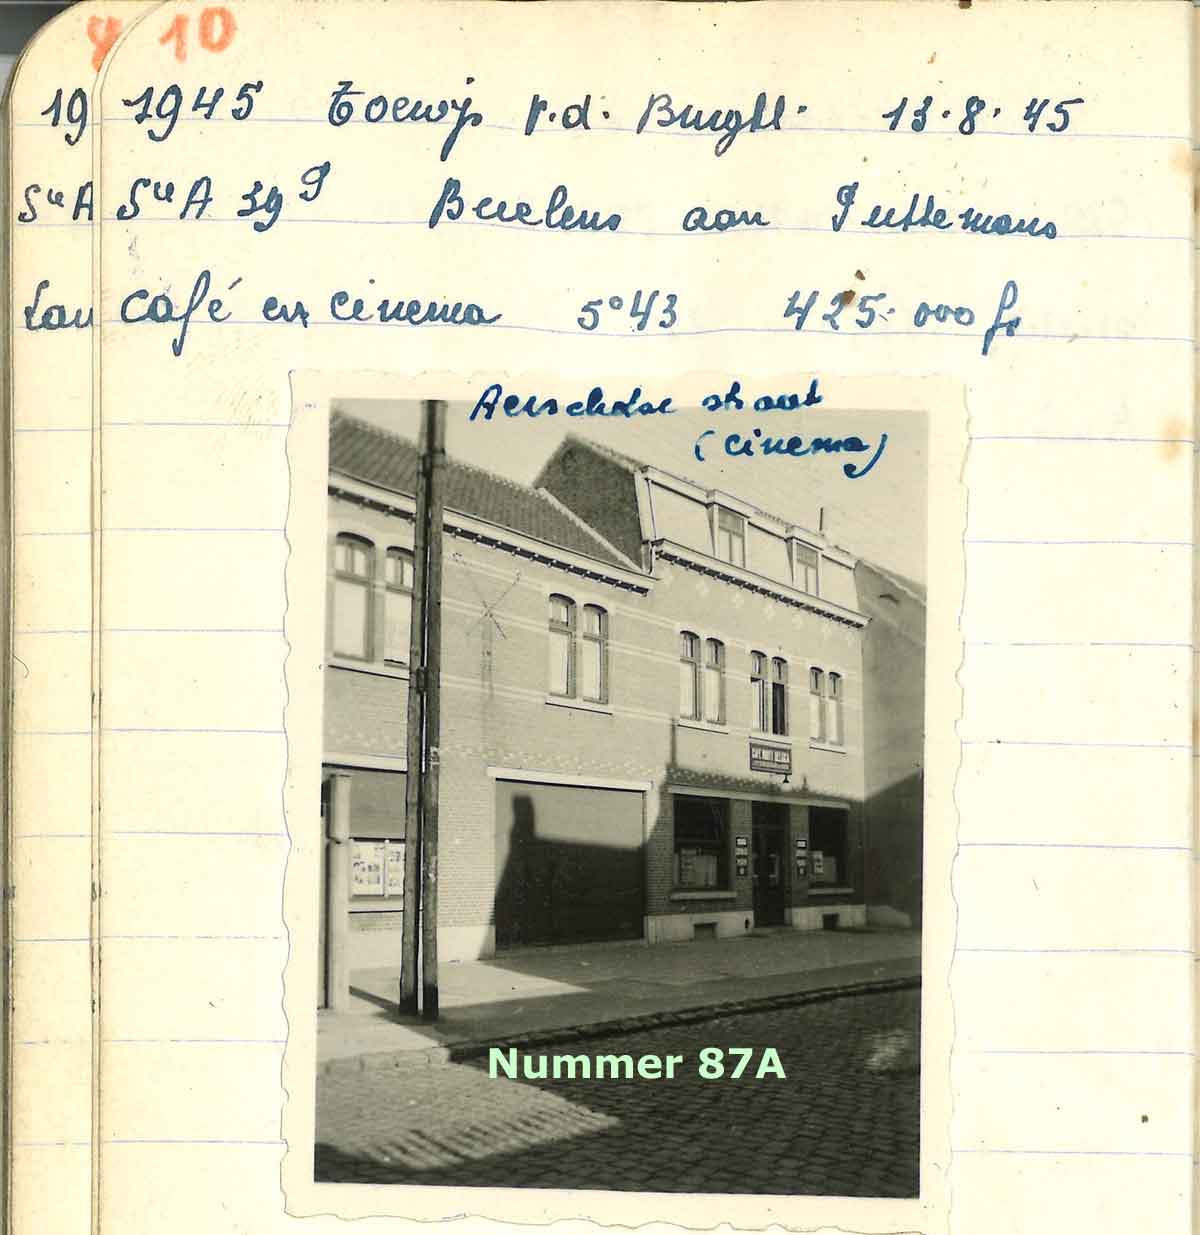 4 10
19 1945 Toewijs v.d. Burght. 13.8.45
Sie A Sie A 39 P Beelens aan Puttemans
Lan café en cinema 5°43 425.000 fr
Aerschotse straat
(cinema)
Nummer 87A